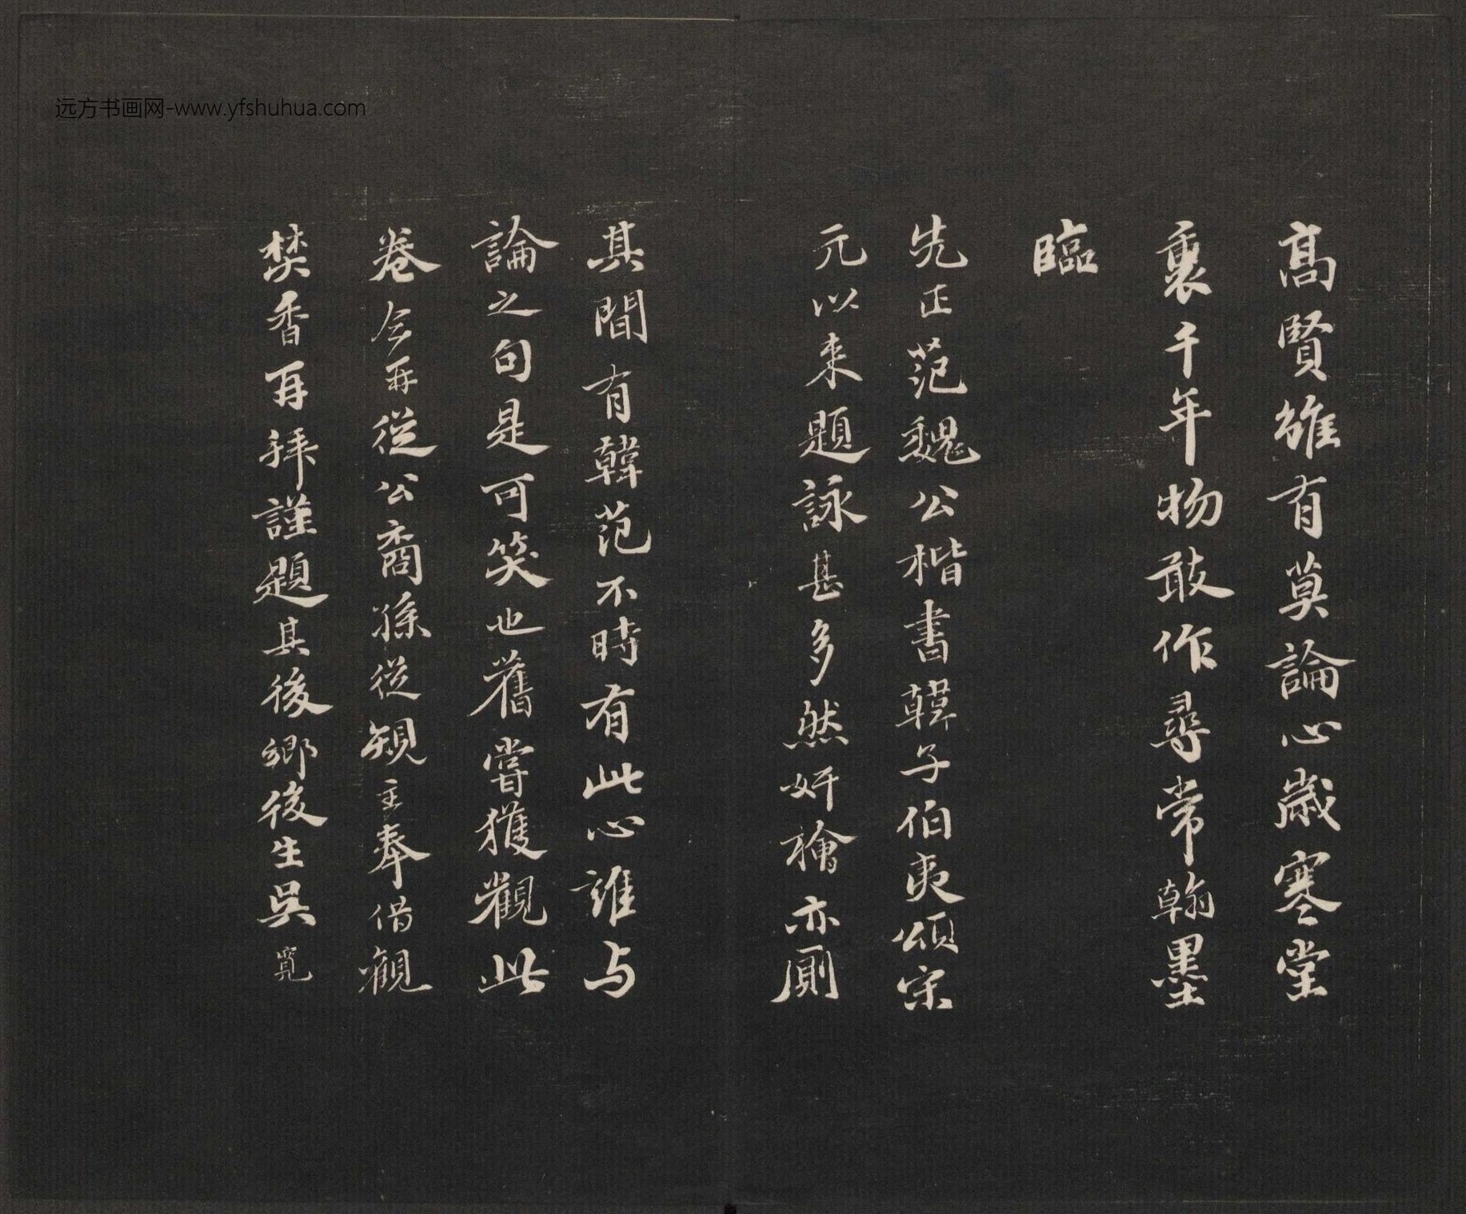 远方书画网-www.yfshuhua.com
高賢雖有莫論心歲寒堂
裏千年物敢作尋常翰墨
臨
先正范魏公楷書韓子伯夷頌宋
元以来題詠甚多然奸檜亦厠
其間有韓范不時有此心誰与
論之句是可笑也舊嘗獲觀此
卷今再從公裔孫從規主奉借觀
焚香再拜謹題其後鄉後生吳寬